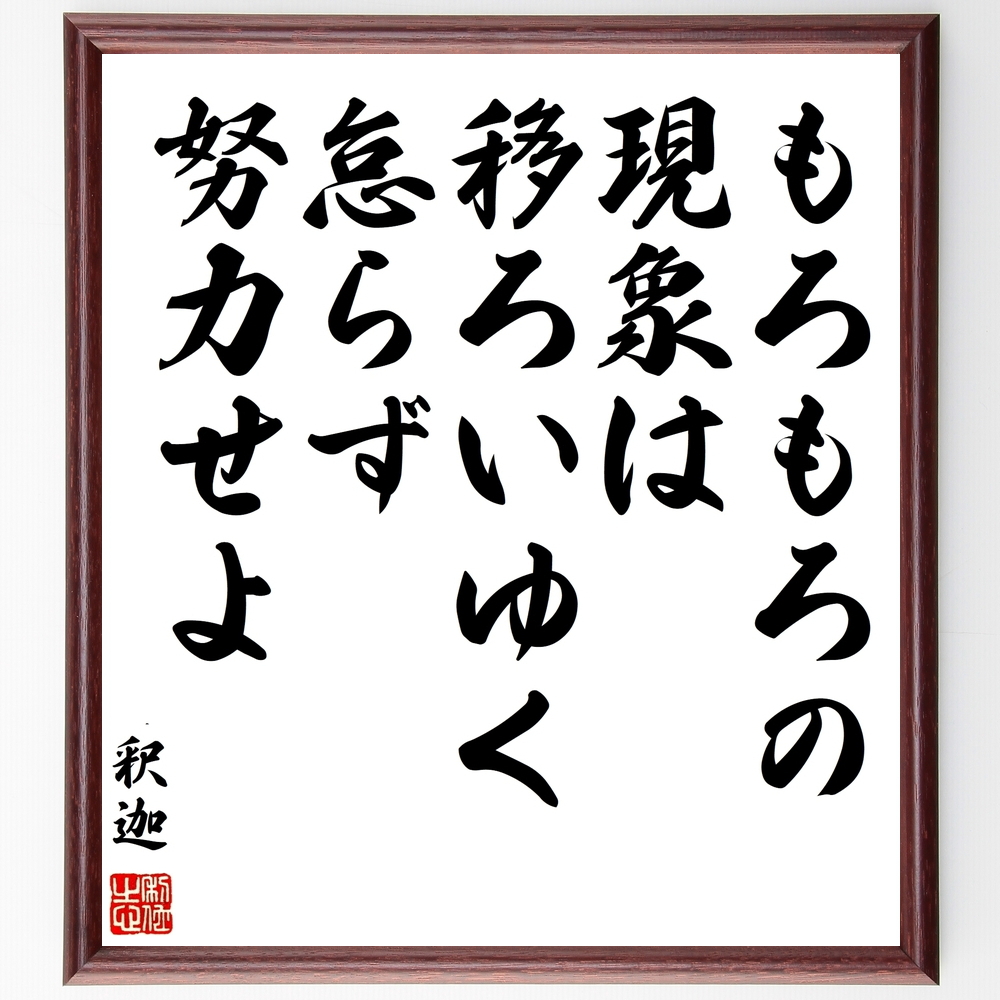 もろもろの
現象は
移ろいゆく
怠らず
努力せよ
釈迦